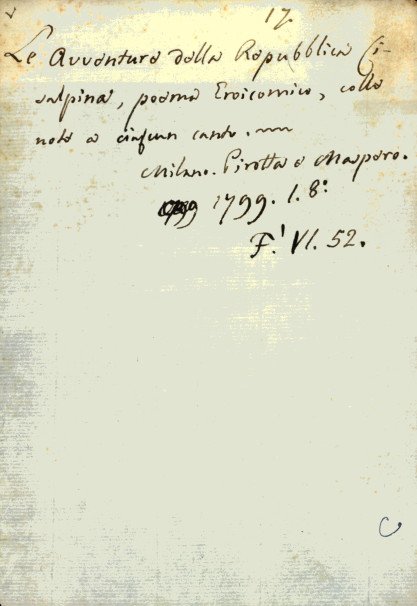 17.
Le Avventure della Repubblica Ci-
salpina, poema Eroicomico, colle
note a ciascun canto.
Milano. Pirotta e Maspero.
1799 1799. l. 8:
F.' VI. 52.
C